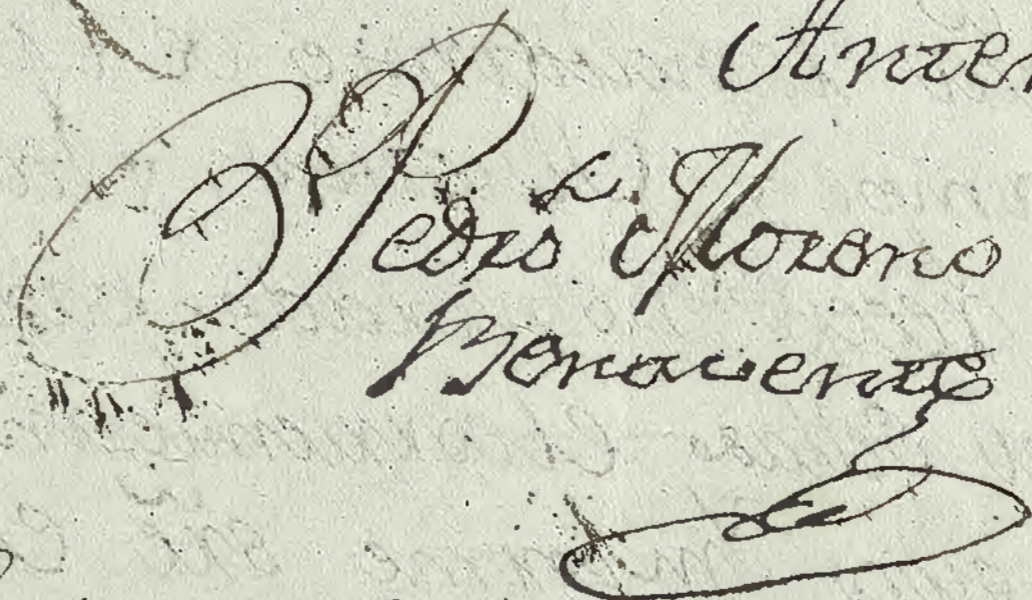 Ante
Pedro Moreno
Benavente